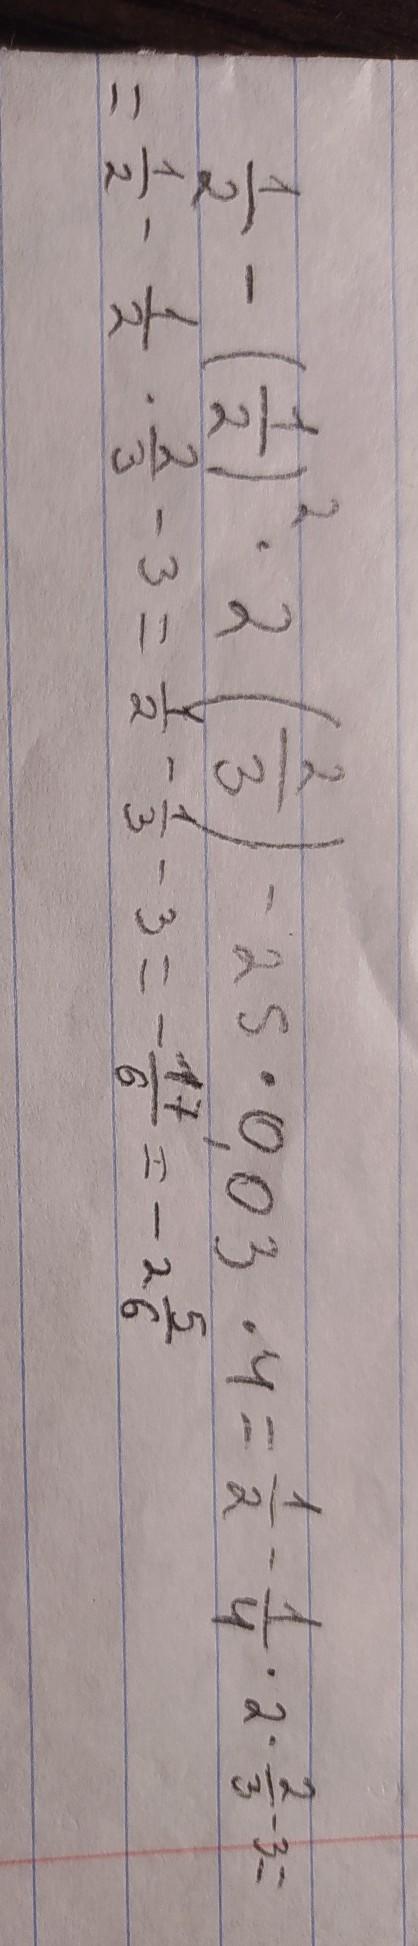 1/2 - (1/2)² · 2 (2/3) - 25 · 0,03 · 4 = 1/2 - 1/4 · 2 · 2/3 - 3 =
= 1/2 - 1/2 · 2/3 - 3 = 1/2 - 1/3 - 3 = - 17/6 = - 2 5/6